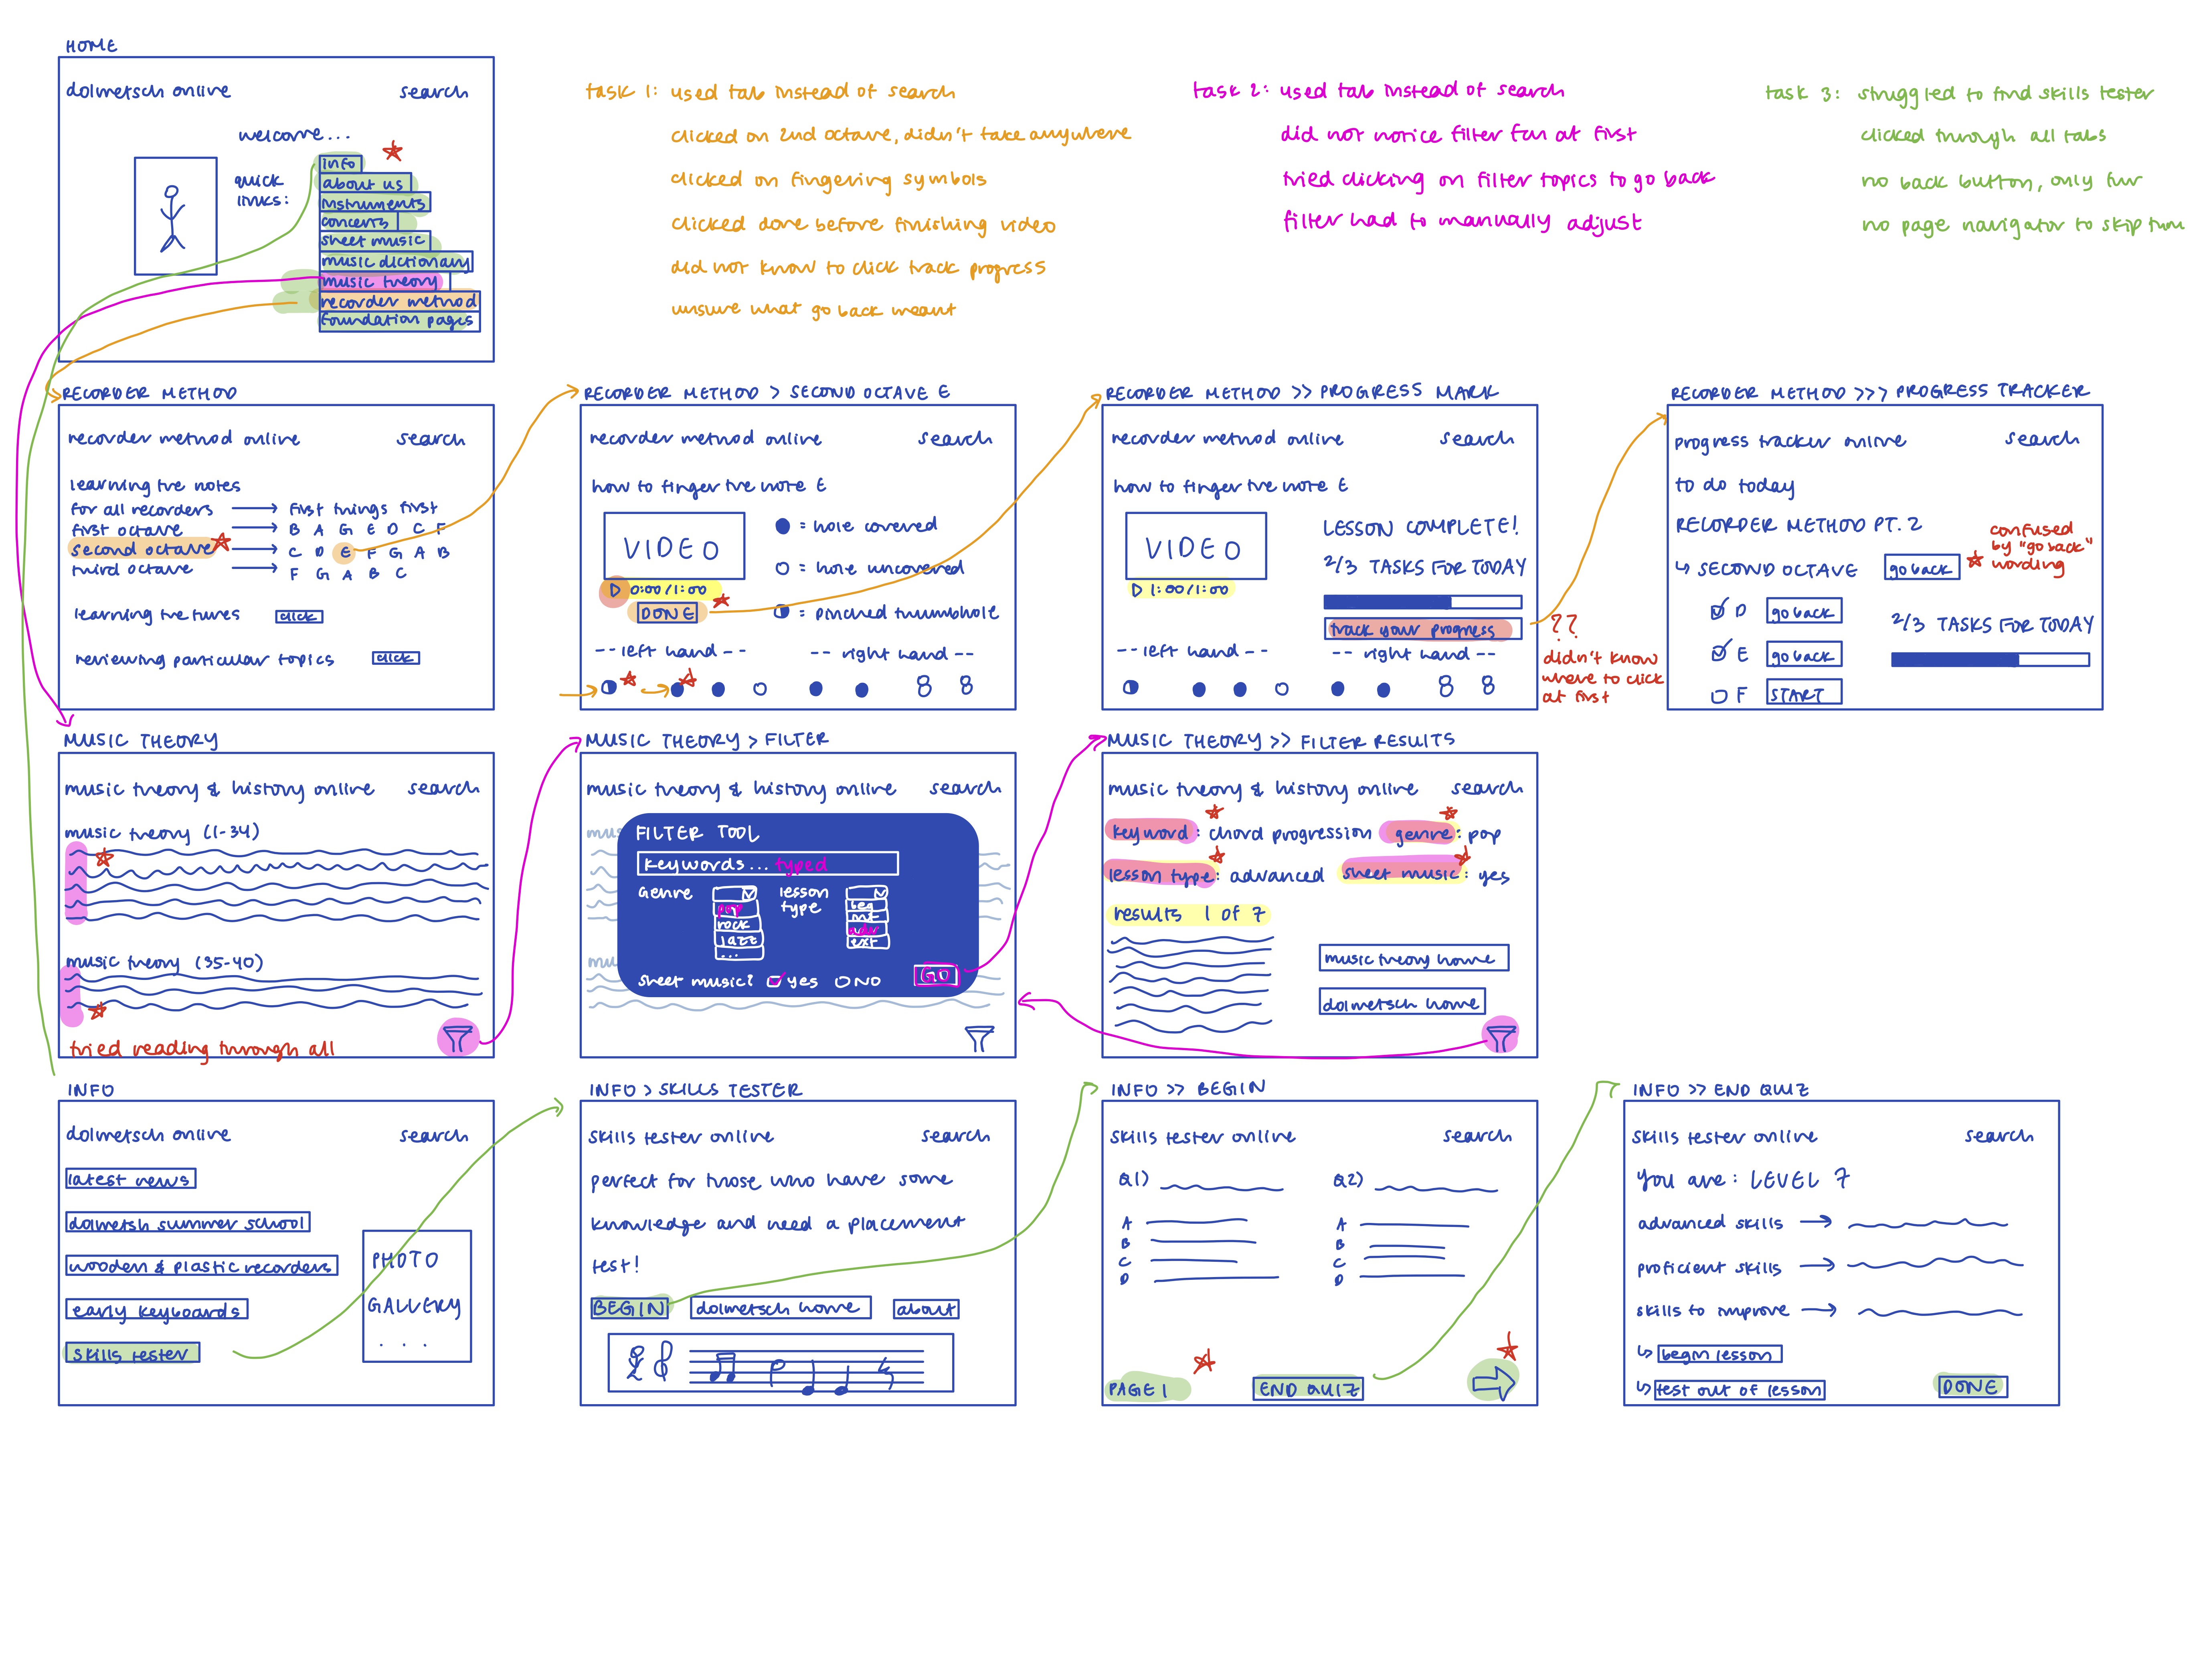 HOME
dolmetsch online search
welcome...
quick links:
info
about us
instruments
concerts
sheet music
music dictionary
music theory
recorder method
foundation pages
task 1: used tab instead of search
clicked on 2nd octave, didn't take anywhere
clicked on fingering symbols
clicked done before finishing video
did not know to click track progress
unsure what go back meant
task 2: used tab instead of search
did not notice filter fun at first
tried clicking on filter topics to go back
filter had to manually adjust
task 3: struggled to find skills tester
clicked through all tabs
no back button, only fwr
no page navigator to skip thru
RECORDER METHOD
recorder method online search
learning the notes
for all recorders → first things first
first octave → B A G E D C F
second octave → C D E F G A B
third octave → F G A B C
learning the tunes click
reviewing particular topics click
RECORDER METHOD > SECOND OCTAVE E
recorder method online search
how to finger the note E
VIDEO
0:00/1:00
DONE
= hole covered
= hole uncovered
= pinched thumbhole
-- left hand -- -- right hand --
RECORDER METHOD >> PROGRESS MARK
recorder method online search
how to finger the note E
VIDEO
1:00/1:00
LESSON COMPLETE!
2/3 TASKS FOR TODAY
track your progress
-- left hand -- -- right hand --
??
didn't know
where to click
at first
RECORDER METHOD >>> PROGRESS TRACKER
progress tracker online search
to do today
RECORDER METHOD PT. 2
↳ SECOND OCTAVE go back
confused
by "go back"
wording
D go back
E go back
F START
2/3 TASKS FOR TODAY
MUSIC THEORY
music theory & history online search
music theory (1-34)
music theory (35-40)
tried reading through all
MUSIC THEORY > FILTER
music theory & history online search
mus
FILTER TOOL
keywords... typed
Genre
pop
rock
jazz
...
lesson type
beg
int
adv
ext
mu
sheet music? yes NO GO
MUSIC THEORY >> FILTER RESULTS
music theory & history online search
keyword: chord progression genre: pop
lesson type: advanced sheet music: yes
results 1 of 7
music theory home
dolmetsch home
INFO
dolmetsch online search
latest news
dolmetsh summer school
wooden & plastic recorders
early keyboards
skills tester
PHOTO
GALLERY
...
INFO > SKILLS TESTER
skills tester online search
perfect for those who have some
knowledge and need a placement
test!
BEGIN dolmetsch home about
INFO >> BEGIN
skills tester online search
Q1) Q2)
A A
B B
C C
D D
PAGE 1 END QUIZ
INFO >> END QUIZ
skills tester online search
you are: LEVEL 7
advanced skills →
proficient skills →
skills to improve →
↳ begin lesson
↳ test out of lesson DONE